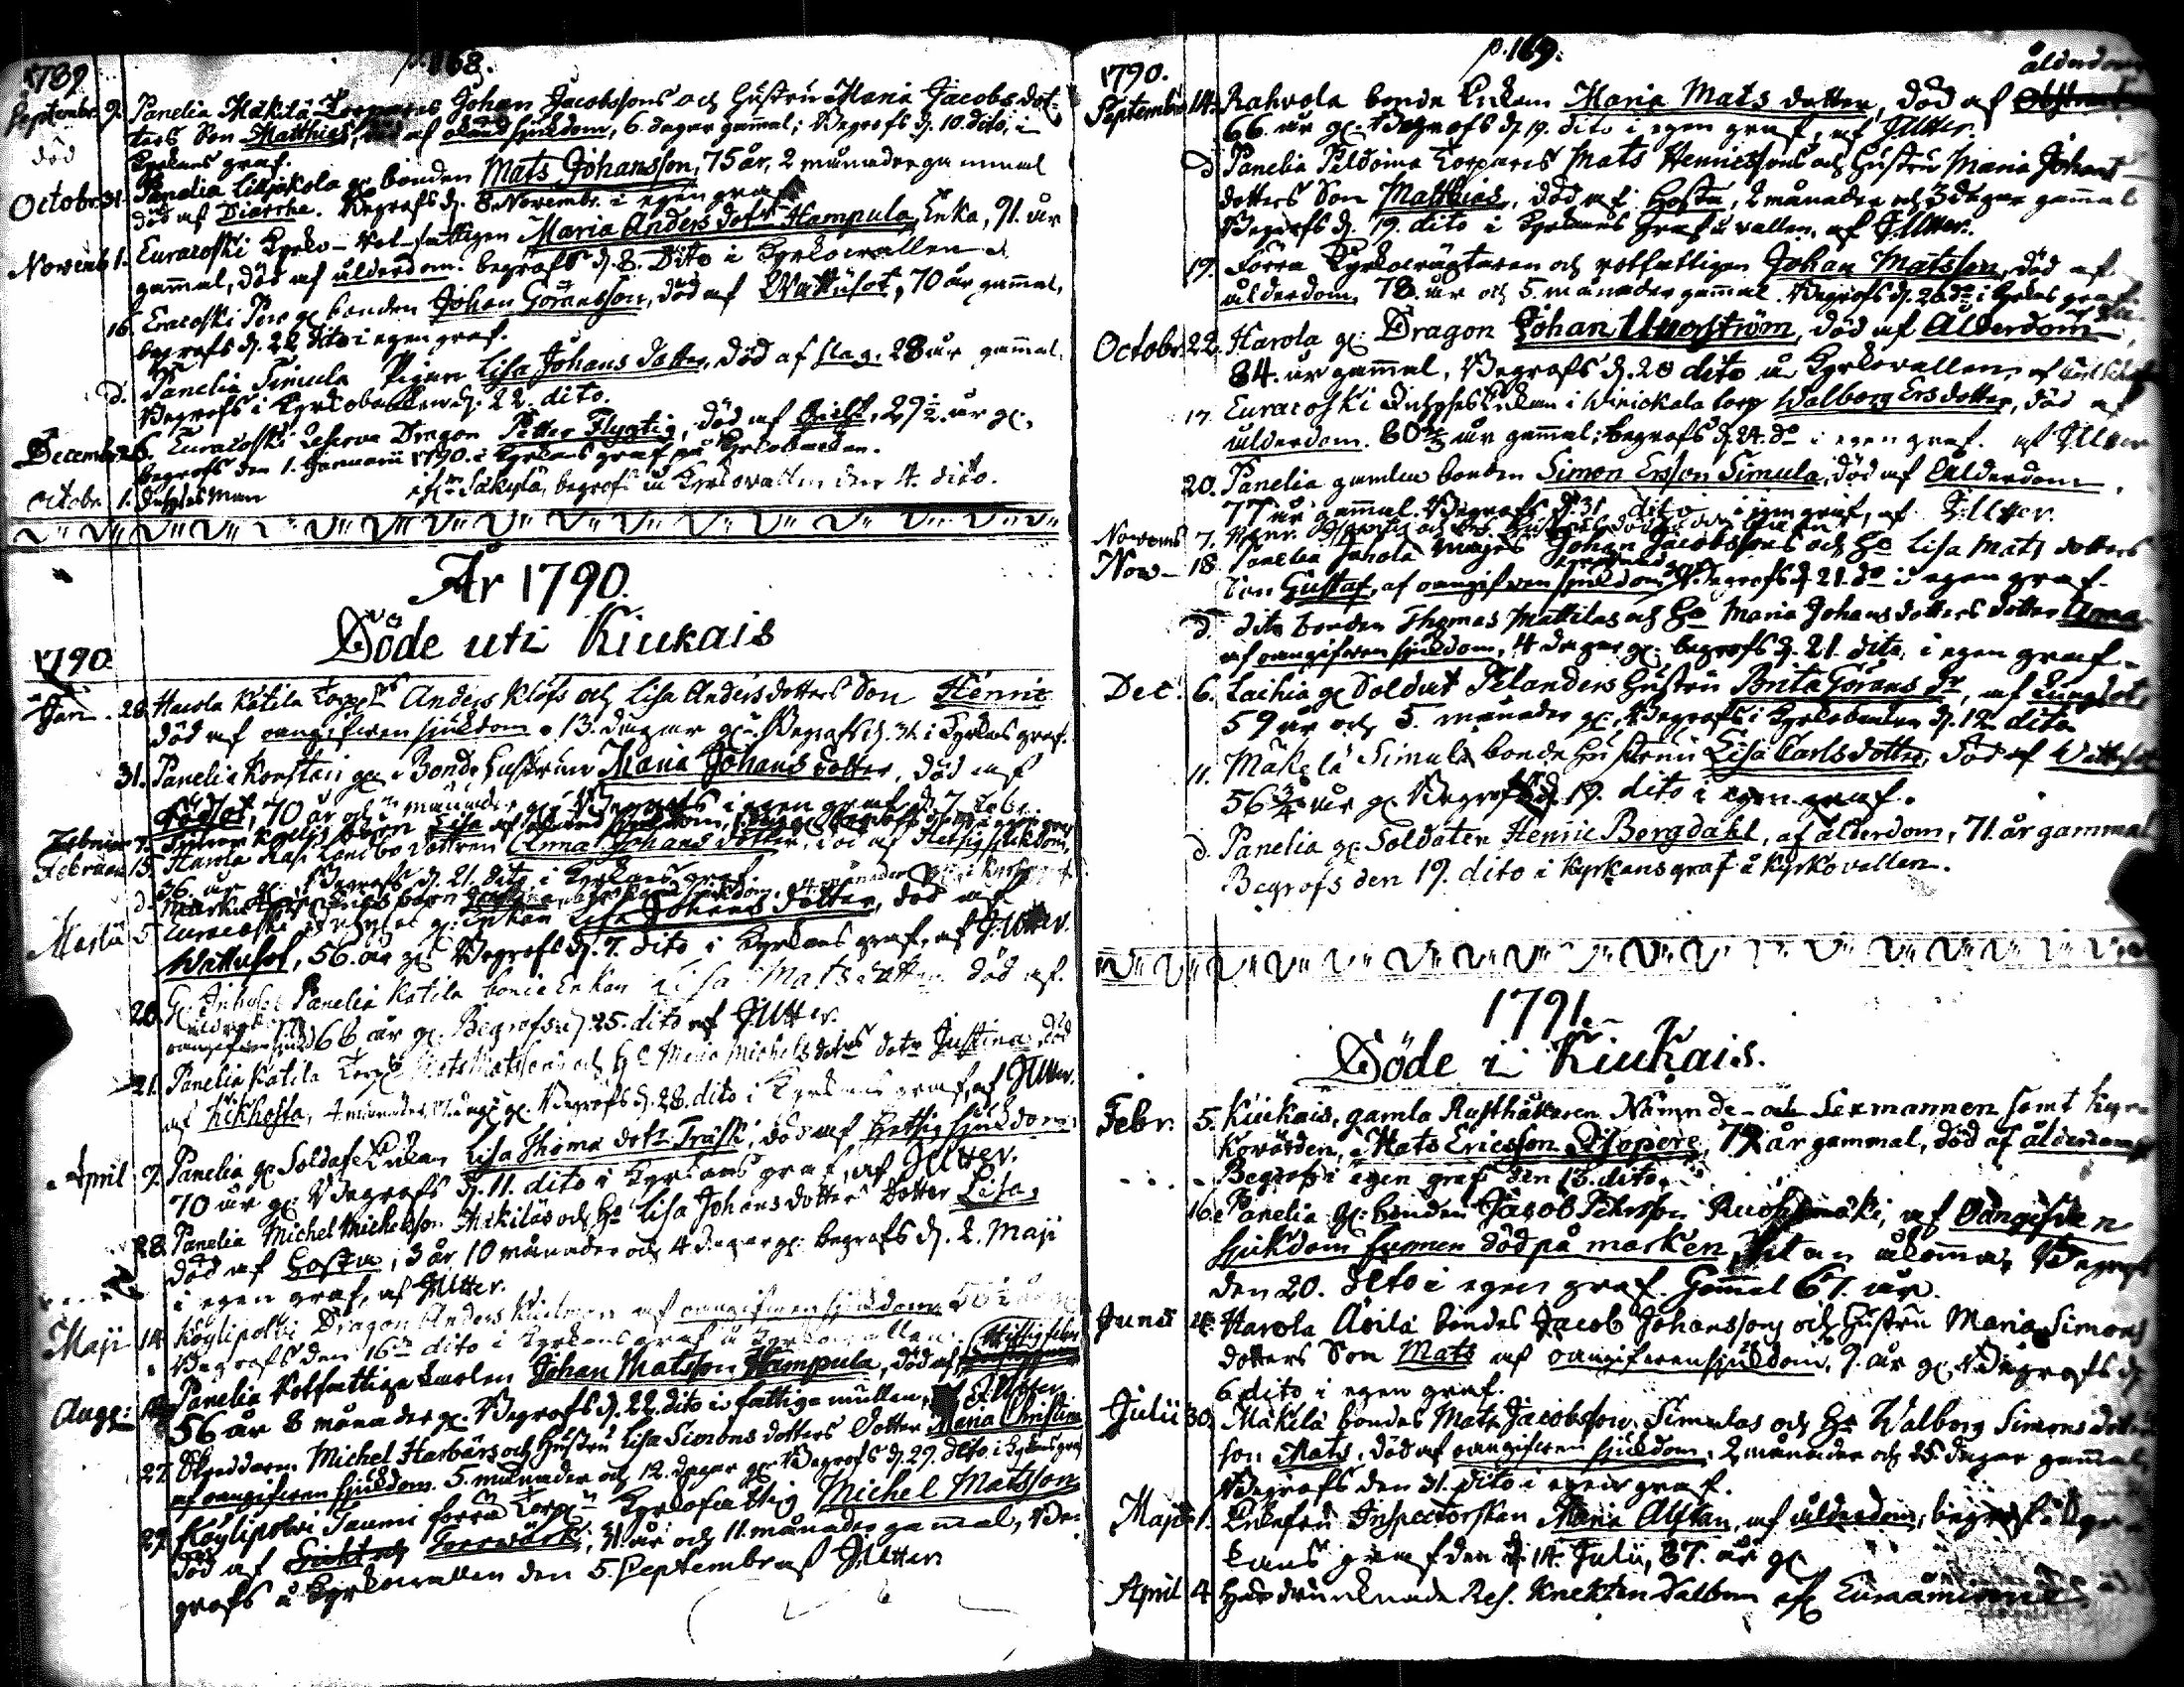 p. 168.
1789
Septembr. 9. Panelia Mäkilä Torpares Johan Jacobssons och Hustru Maria Jacobs dot-
död ters Son Matthias, död af okänd sjukdom, 6. dagar gammal; Begrofs d. 10. dito, i
Kyrkans graf.
Octobr. 31. Panelia Lilljakola gl. bonden Mats Johansson, 75 år, 2 månader gammal
död af Diarrhe. Begrofs d. 8. Novembr. i egen graf
Novemb. 1. Euracoski Kyrko-Rot-fattigen Maria Anders dotr Hampula, Enka, 91. år
gammal, död af ålderdom. begrofs d. 8. Dito i Kyrkovallen
16. Eracoski Pere gl. bonden Johan Göransson, död af Wattusot, 70 år gammal,
begrofs d. 22 dito i egen graf.
d. Panelia Simula Pigan Lisa Johans dotter, död af slag. 28 år gammal.
Begrofs i Kyrkobalken d. 22. dito.
Decemb. 26. Euracoski Reserve Dragon Petter Flygtig, död af Gicht, 29½. år gl.
begrofs den 1. Januarii 1790. i Kyrkans graf på Kyrkobacken.
Octobr. 1. Inhyses Man Säkylä, begrofs å Kyrkovallen den 4. dito.
År 1790.
Döde uti Kiukais
1790
Jan. 28. Harola Katila Torp. Anders Klöfs och Lisa Anders dotters Son Henric
död af oangifwen sjukdom, 13. dagar gl. Begrofs d. 31. i Kyrkans graf.
31. Panelia Konstari gl. Bonde hustrun Maria Johans dotter, död af
70 år och månader gl. Begrofs i egen graf d. 7. Febr.
Februar. 7. barn Lisa af okänd sjukdom,
Februar. 15. Harola dottren Anna Johans dotter, död af Hetsig sjukdom,
36. år gl. Begrofs d. 21. dito i Kyrkans graf.
d. barn
Martii 5. Euracoski Inhyses gl. Enkan Lisa Johans dotter, död af
Wattusot, 56. år gl. Begrofs d. 7. dito i Kyrkans graf, af J: Utter.
20. Gl. Inhyses Panelia Katila bonde Enkan Lisa Mats dotter död af
oangifwen sjukd 66 år gl. Begrofs d. 25. dito af J: Utter.
21. Panelia Katila Torp. Mats Matssons och H. Maria Michels doters dotr Justina, död
af Kikhosta, 4 månader, 17. dag. gl. Begrofs d. 28. dito i Kyrkans graf, af J: Utter.
April 9. Panelia gl. Soldate Enkan Lisa Thoma dotr Träsk, död af Hettsig sjukdom
70 år gl. Begrofs d. 11. dito i Kyrkans graf, af J: Utter.
28. Panelia Michel Michelsson Mäkiläs och H. Lisa Johans dotters Dotter Lisa,
död af Hosta, 3 år 10 månader och 4 dagar gl. begrofs d. 2. Maji
i egen graf, af J: Utter.
Maji 14. Köylipolvi Dragon Anders af oangifwen sjukdom 50½ år gl.
Begrofs den 16de dito i Kyrkans graf å Kyrkovallen.
Aug: Panelia Rotfattiga karlen Johan Matsson Hampula, död af Hittsig feber
56 år 8 månader gl. Begrofs d. 22. dito i fattiga mullen, J: Utter.
27. Skreddaren Michel Harbärs och Hustru Lisa Simons dotters Dotter Maria Christina
af oangifwen sjukdom. 5. månader och 12. dagar gl. Begrofs d. 29. dito i Kyrkans graf
29. Köylipolwi Taumi förra Torp. Kyrkofattig Michel Matsson
död af Torrwärk, år och 11. månader gammal, Be-
grofs å Kyrkovallen den 5. Septembr. af J: Utter
p. 169.
1790.
ålderdom
Septembr. 14. Rahvola bonde Enkan Maria Mats dotter, död af
66 år gl. Begrofs d. 19. dito i egen graf, af J: Utter.
d Panelia Peldoima Torpares Mats Henricssons och Hustru Maria Johans
dotters Son Matthias, död af Hosta, 2 månader och 3 dagar gammal
Begrofs d. 19. dito i Kyrkans graf å vallen, af J: Utter.
19. Förra Kyrkowägtaren och rotfattigen Johan Matsson, död af
ålderdom, 78. år och 5. månader gammal. Begrofs d. 26 do i Kyrkans graf
Octobr. 22. Harola gl: Dragon Johan Ungström, död af Ålderdom,
84. år gammal, Begrofs d. 28 dito å Kyrkovallen, af
17. Euracoski Inhyses Enkan i Winickala torp Walborg Ersdotter, död af
ålderdom. 60⅔ år gammal; begrofs d. 24. do i egen graf. af J: Utter
20. Panelia gamla bonden Simon Ersson Simula, död af Ålderdom,
77 år gammal. Begrofs d. 31. dito i egen graf, af J: Utter.
Novemb 7.
Nov- 18. Panelia Jahola Måges Johan Jacobssons och H. Lisa Mats dotters
Son Gustaf, af oangifwen sjukdom, Begrofs d. 21. do i egen graf.
d. dito bonden Thomas Mattilas och H. Maria Johans dotters dotter Anna
af oangifwen sjukdom, 4 dagar gl. begrofs d. 21. dito, i egen graf.
Dec. 6. Laihia gl. Soldat Pelanders Hustru Brita Görans dr, af Lungsot,
59 år och 5. månader gl., Begrofs i Kyrkobacken d. 12 dito
11. Mäkelä Simula bonde hustrun Lisa Carls dotter, död af Wattusot
56¾ år gl. Begrofs d. 19. dito i egen graf.
d. Panelia gl. Soldaten Henric Bergdahl, af ålderdom, 71. år gammal
Begrofs den 19. dito i kyrkans graf å kyrkovallen.
1791.
Döde i Kiukais.
Febr. 5. Kiukais, gamla Rusthållaren Nämnde- och Sexmannen samt Kyr-
kovärden, Mats Ericsson 79 år gammal, död af ålderdom
Begrofs i egen graf den 13. dito.
16. Panelia gl: bonden Jacob Pehrsson Ruohomäki, af Oangifven
sjukdom funnen död på marken, utan åkomma, Begrofs
den 20. dito i egen graf. Gammal 67. år.
Junii Harola Ävilä bondes Jacob Johanssons och Hustru Maria Simons
dotters Son Mats af oangifwen sjukdom, 9. år gl. Begrofs d.
6 dito i egen graf.
Julii 30. Mäkilä bondes Mats Jacobsson Simulas och H. Walborg Simons dotters
son Mats, död af oangifwen sjukdom, 2 månader och 25 dagar gammal,
Begrofs den 31. dito i egen graf.
Maji 1. Enkefru Inspectorskan Maria Alftan, af ålderdom, begrofs i Kyr-
kans graf den 14. Julii, 87. år gl.
April 4 drunknade Res. Knekten Dalbom af Euraåminne